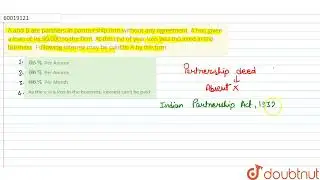 60019121
A and B are partners in partnership firm without any agreement. A has given a loan of Rs 50,000 to the firm. At the end of year loss was incurred in the business. Following interest may be paid to A by the firm
1. @5 % Per Annum
2. @6 % Per Annum
3. @6 % Per Month
4. As there is a loss in the business, interest can't be paid
Partnership deed
Absent X
Indian Partnership Act, 1932
doubtnut